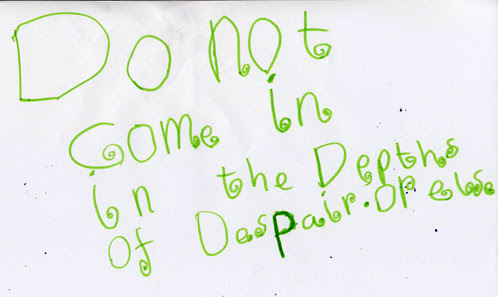 Do not
come in
in the Depths
of Despair. or else